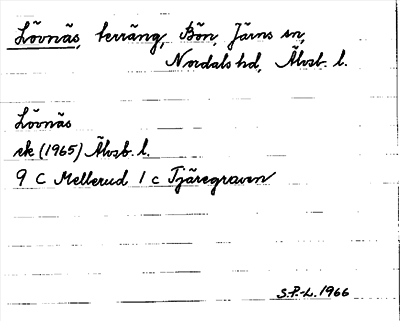 Lövnäs, terräng, Bön, Järns sn,
Nordals hd, Älvsb. l.
Lövnäs
ek (1965) Älvsb. l.
9 C Mellerud 1 c Tjäregraven
S.P.-L. 1966